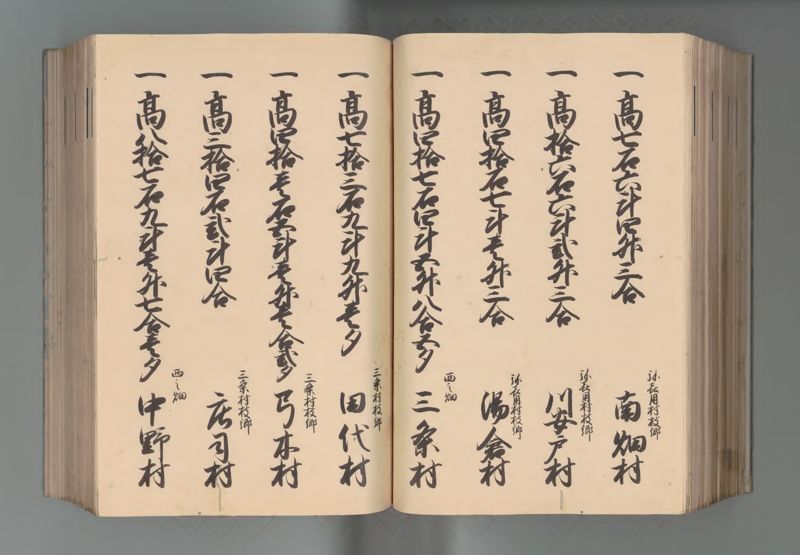 一 高七石六斗四升三合
弥長用村枝郷
南畑村
一 高拾六石六斗弐升三合
弥長用村枝郷
川安戸村
一 高四拾石七斗壱升三合
弥長用村枝郷
湯舎村
一 高四拾七石四斗五升八合五夕
西之畑
三条村
一 高七拾三石九斗九升壱夕
三条村枝郷
田代村
一 高四拾壱石五斗壱升壱合弐夕
三条村枝郷
弓木村
一 高三拾四石弐斗四合
三条村枝郷
庄司村
一 高八拾七石九斗壱升七合壱夕
西之畑
中野村